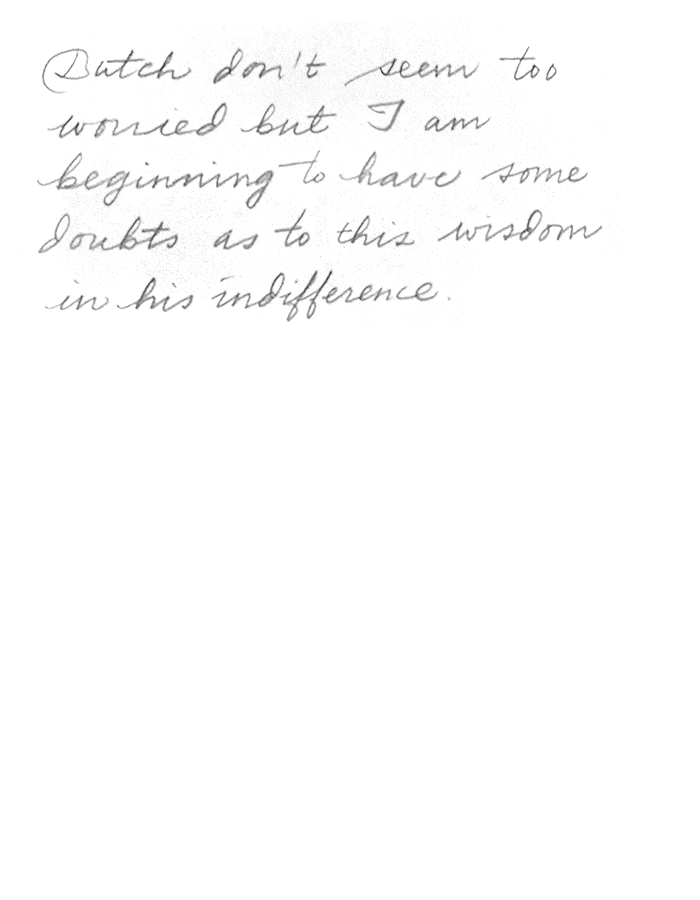 Dutch don't seem too
worried but I am
beginning to have some
doubts as to this wisdom
in his indifference.